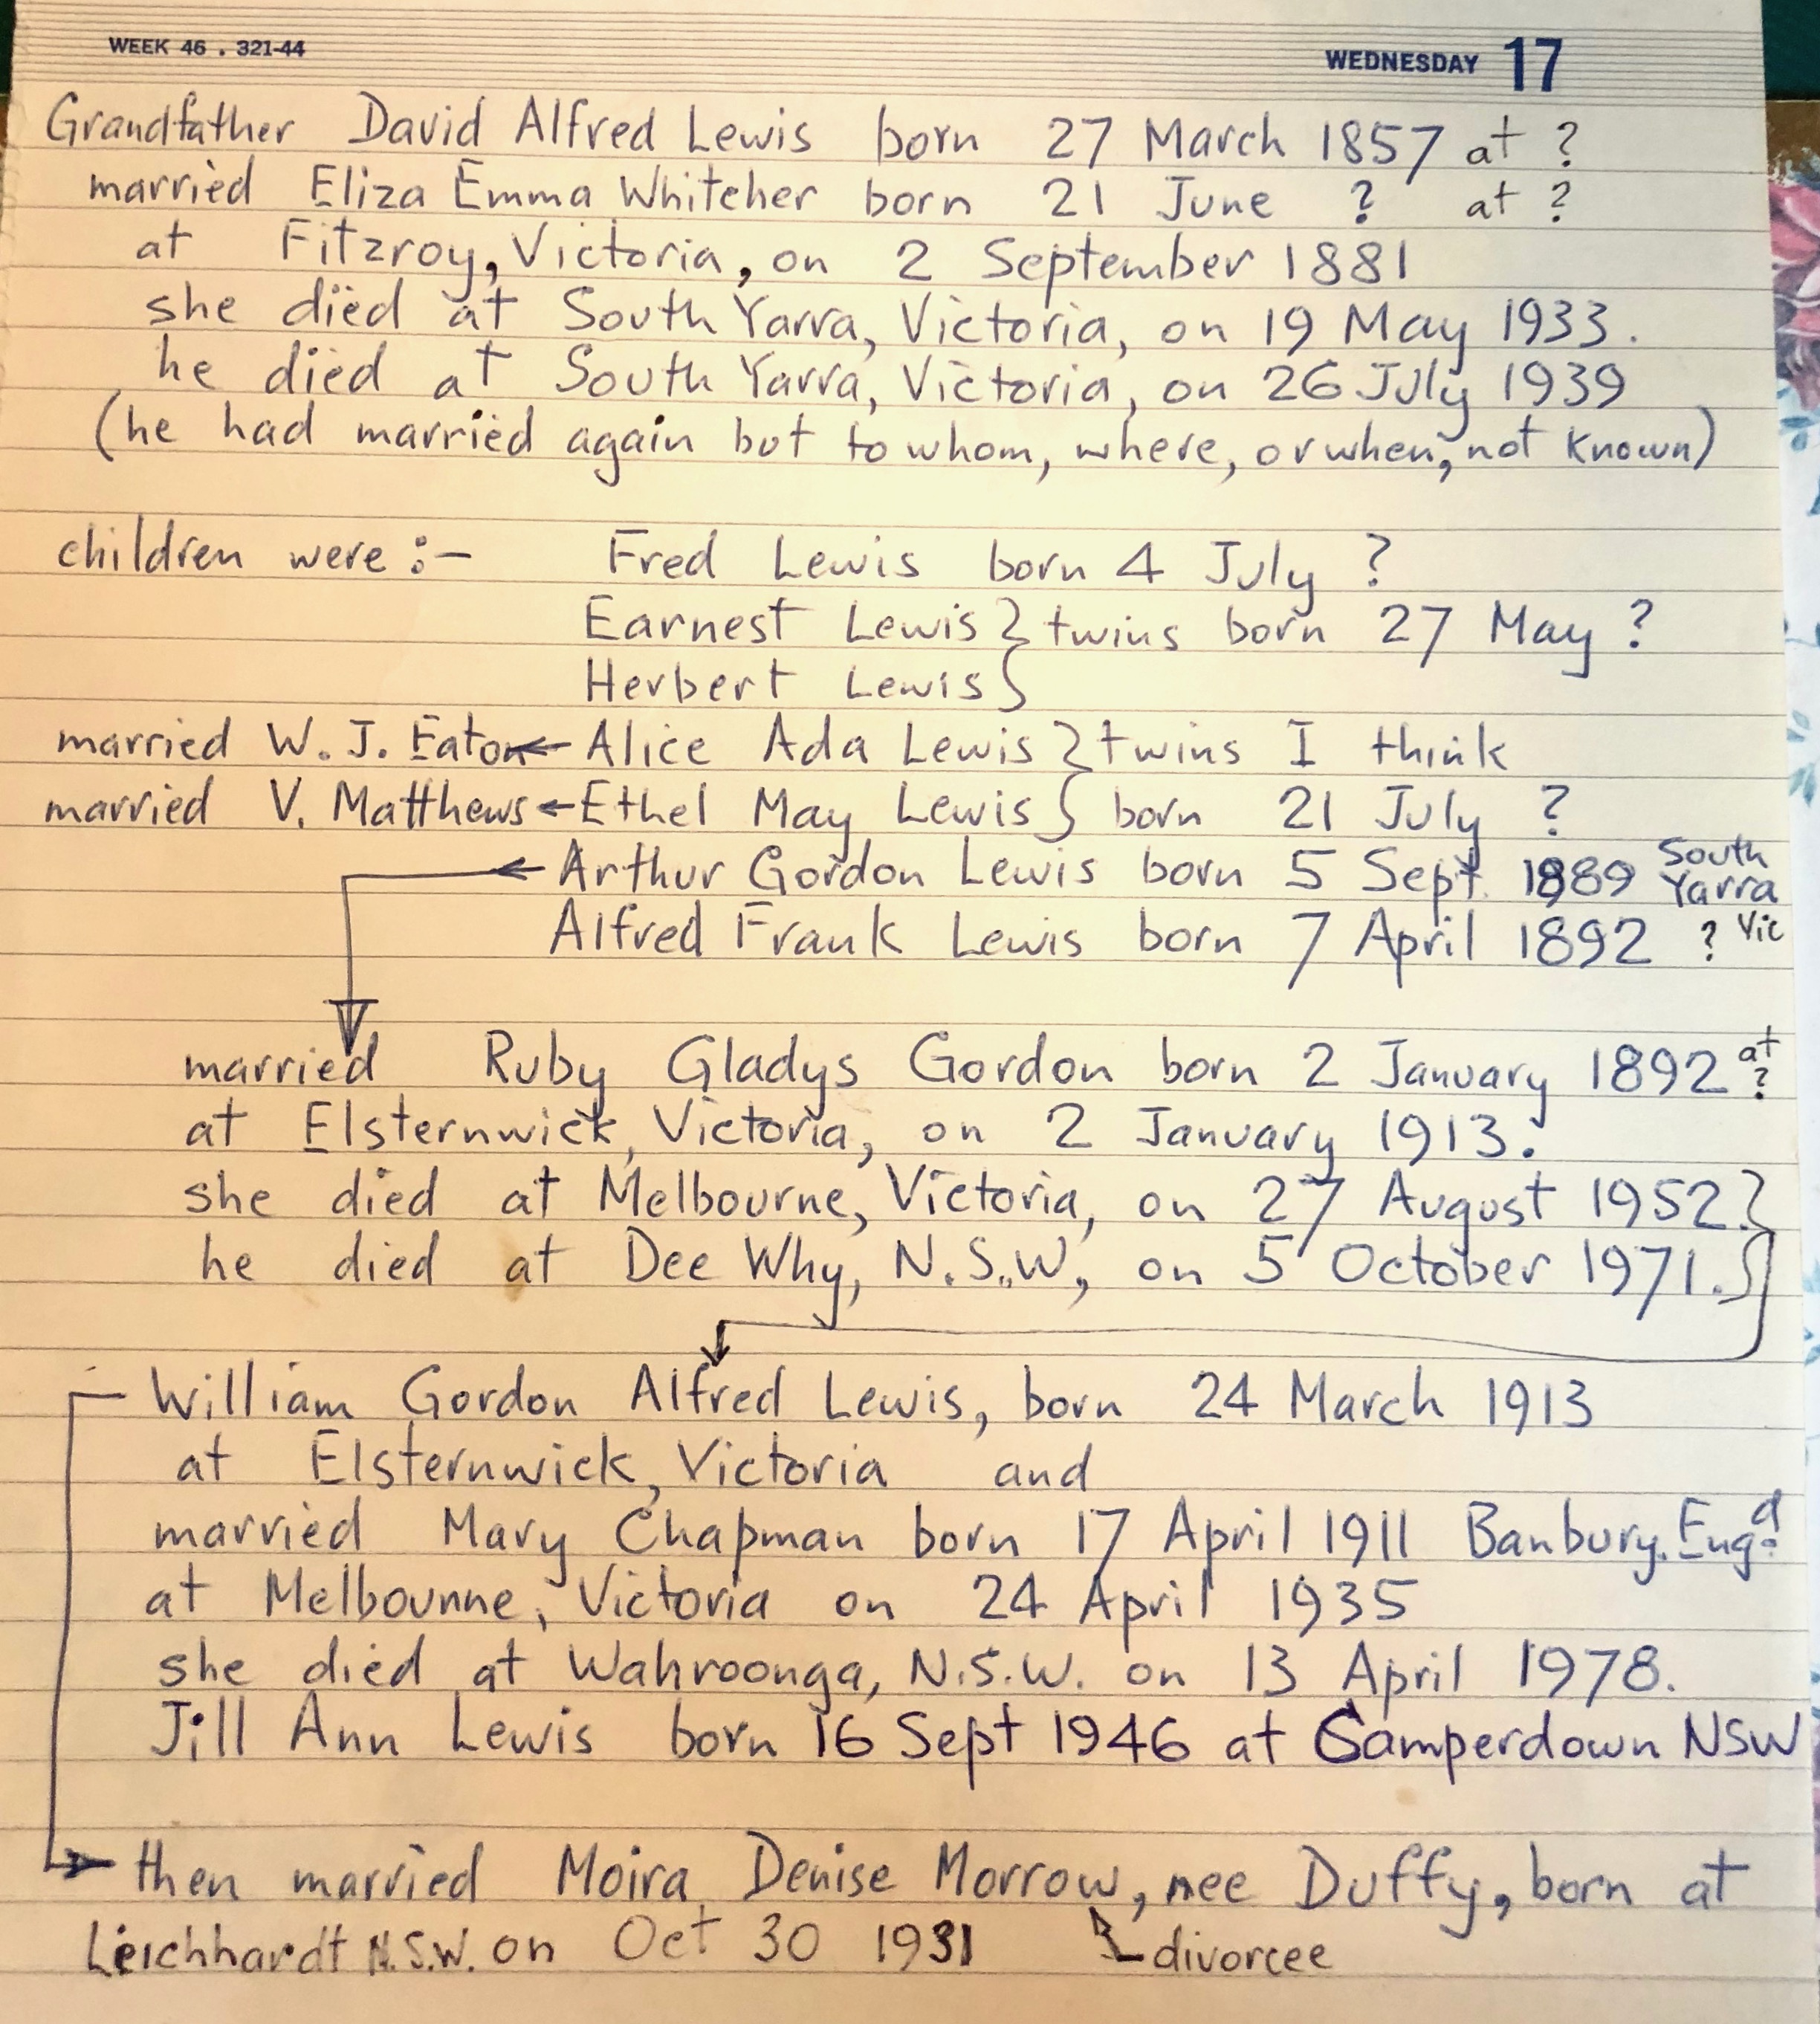 WEEK 46 . 321-44
WEDNESDAY 17
Grandfather David Alfred Lewis born 27 March 1857 at ?
married Eliza Emma Whitcher born 21 June ? at ?
at Fitzroy, Victoria, on 2 September 1881
she died at South Yarra, Victoria, on 19 May 1933.
he died at South Yarra, Victoria, on 26 July 1939
(he had married again but to whom, where, or when, not known)
children were :- Fred Lewis born 4 July ?
Earnest Lewis } twins born 27 May ?
Herbert Lewis }
married W. J. Eaton ← Alice Ada Lewis } twins I think
married V. Matthews ← Ethel May Lewis } born 21 July ?
← Arthur Gordon Lewis born 5 Sept 1889 South Yarra
Alfred Frank Lewis born 7 April 1892 ? Vic
married Ruby Gladys Gordon born 2 January 1892 at ?
at Elsternwick, Victoria, on 2 January 1913.
she died at Melbourne, Victoria, on 27 August 1952. }
he died at Dee Why, N.S.W, on 5 October 1971. }
William Gordon Alfred Lewis, born 24 March 1913
at Elsternwick, Victoria and
married Mary Chapman born 17 April 1911 Banbury. Engd.
at Melbounne, Victoria on 24 April 1935
she died at Wahroonga, N.S.W. on 13 April 1978.
Jill Ann Lewis born 16 Sept 1946 at Camperdown NSW
then married Moira Denise Morrow, nee Duffy, born at
Leichhardt N.S.W. on Oct 30 1931 divorcee